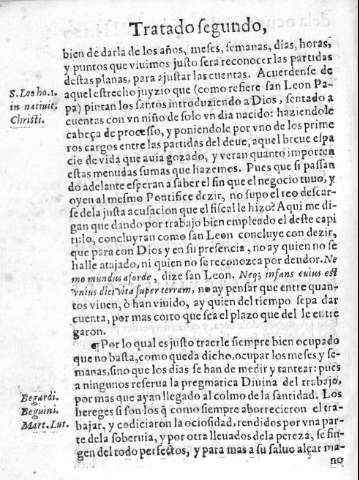 Tratado segundo,
bien de darla de los años, meses, semanas, dias, horas,
y puntos que viuimos justo sera reconocer las partidas
destas planas, para ajustar las cuentas. Acuerdense de
S. Leo ho. 1.
in natiuit.
Christi.
aquel estrecho juyzio que (como refiere san Leon Pa-
pa) pintan los santos introduziendo a Dios, sentado a
cuentas con vn niño de solo vn dia nacido: haziendole
cabeça de processo, y poniendole por vno de los prime
ros cargos entre las partidas del deue, aquel breue espa
cio de vida que auia gozado, y veran quanto importen
estas menudas sumas que hazemos. Pues que si passan
do adelante esperan a saber el fin que el negocio tuuo, y
oyen al mesmo Pontifice dezir, no supo el reo descar-
se de la justa acusacion que el fiscal le hizo? Aqui me di-
gan que dando por trabajo bien empleado el deste capi
tulo, concluyran como san Leon concluye con dezir,
que para con Dios y en su presencia, no ay quien no se
halle atajado, ni quien no se reconozca por deudor. Ne
mo mundus a sorde, dize san Leon. Neq; infans cuius est
vnius diei vita super terram, no ay pensar que entre quan-
tos viuen, ò han viuido, ay quien del tiempo sepa dar
cuenta, por mas corto que sea el plazo que del le entre
garon.
¶ Por lo qual es justo traerle siempre bien ocupado
que no basta, como queda dicho, ocupar los meses y se-
manas, sino que los dias se han de medir y tantear: pues
a ningunos reserua la pregmatica Diuina del trabajo,
por mas que ayan llegado al colmo de la santidad. Los
Begardi.
Beguini.
Mart. Lut.
hereges si son los q̃ como siempre aborrecieron el tra-
bajar, y codiciaron la ociosidad, rendidos por vna par-
te de la soberuia, y por otra lleuados de la pereza, se fin-
gen del todo perfectos, y para mas a su saluo alçar ma-
no